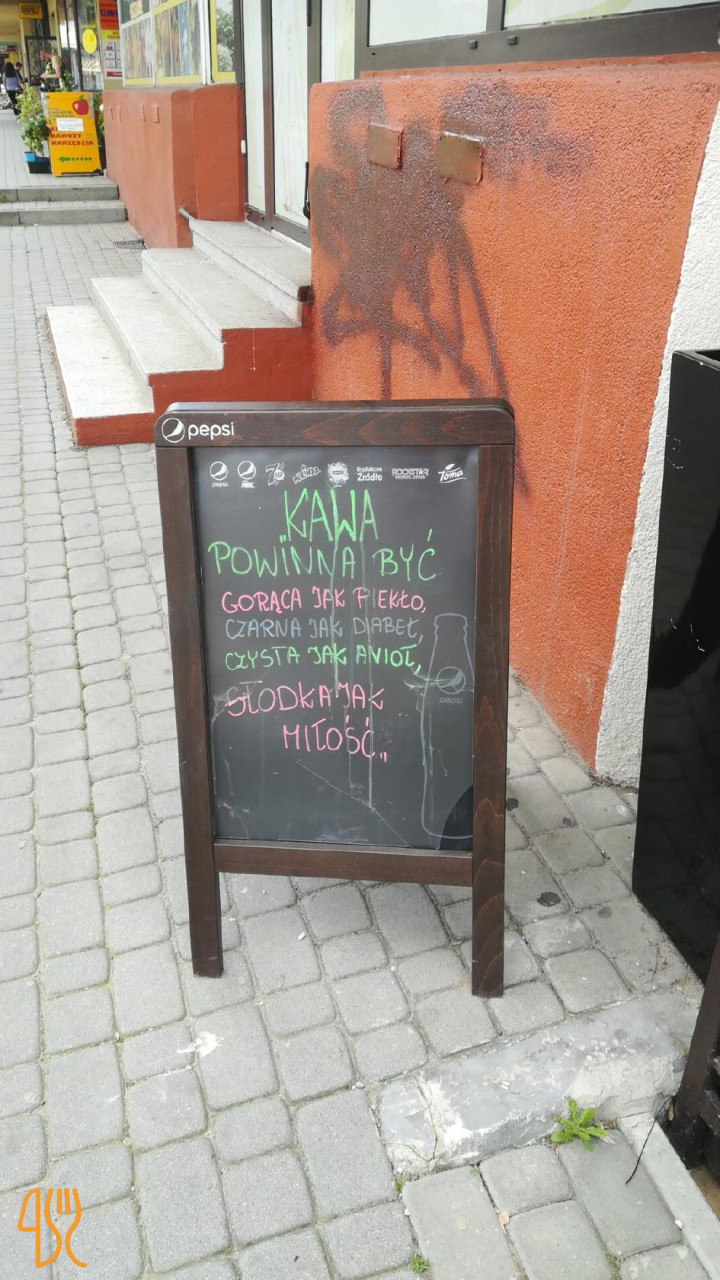 NAWOZY
NARZĘDZIA
pepsi
pepsi
Krystaliczne
Źródło
ROCKSTAR
ENERGY DRINK
Toma
„KAWA
POWINNA BYĆ
GORĄCA JAK PIEKŁO,
CZARNA JAK DIABEŁ,
CZYSTA JAK ANIOŁ,
SŁODKA JAK
MIŁOŚĆ„
pepsi